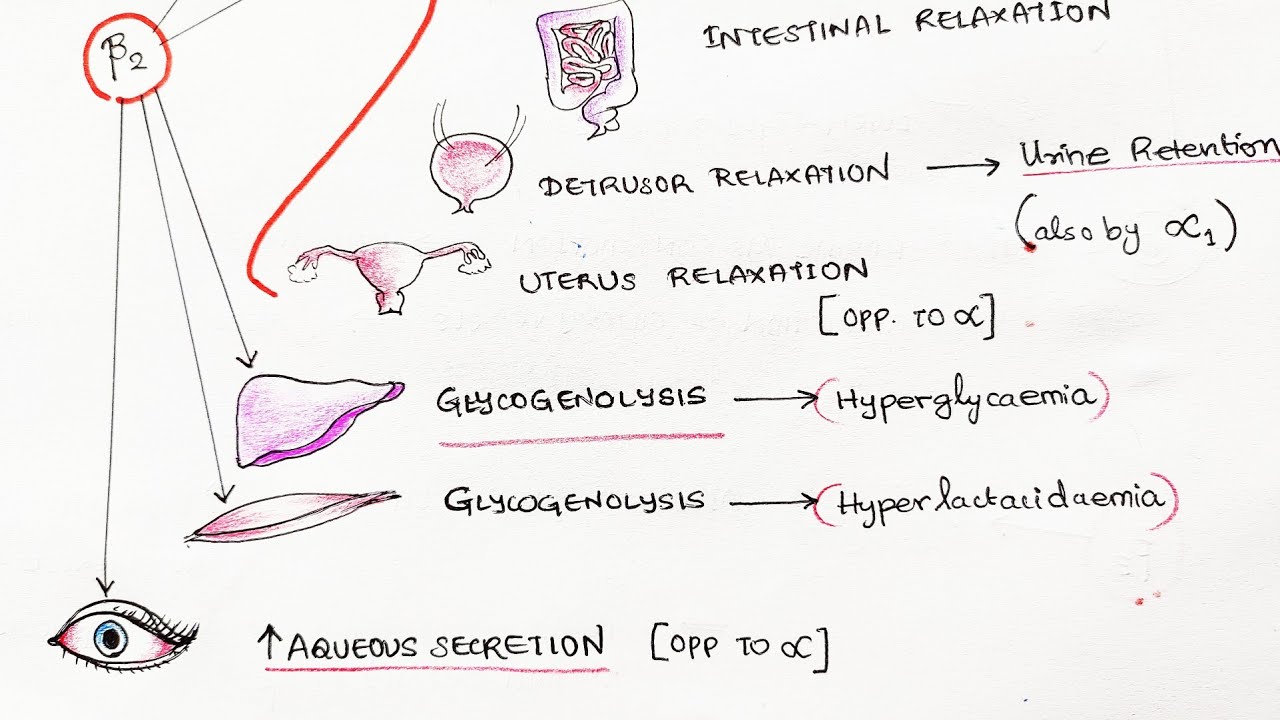 β2
INTESTINAL RELAXATION
DETRUSOR RELAXATION → Urine Retention
(also by ∝1)
UTERUS RELAXATION
[OPP. TO ∝]
GLYCOGENOLYSIS → (Hyperglycaemia)
GLYCOGENOLYSIS → (Hyperlactacidaemia)
↑ AQUEOUS SECRETION [OPP TO ∝]